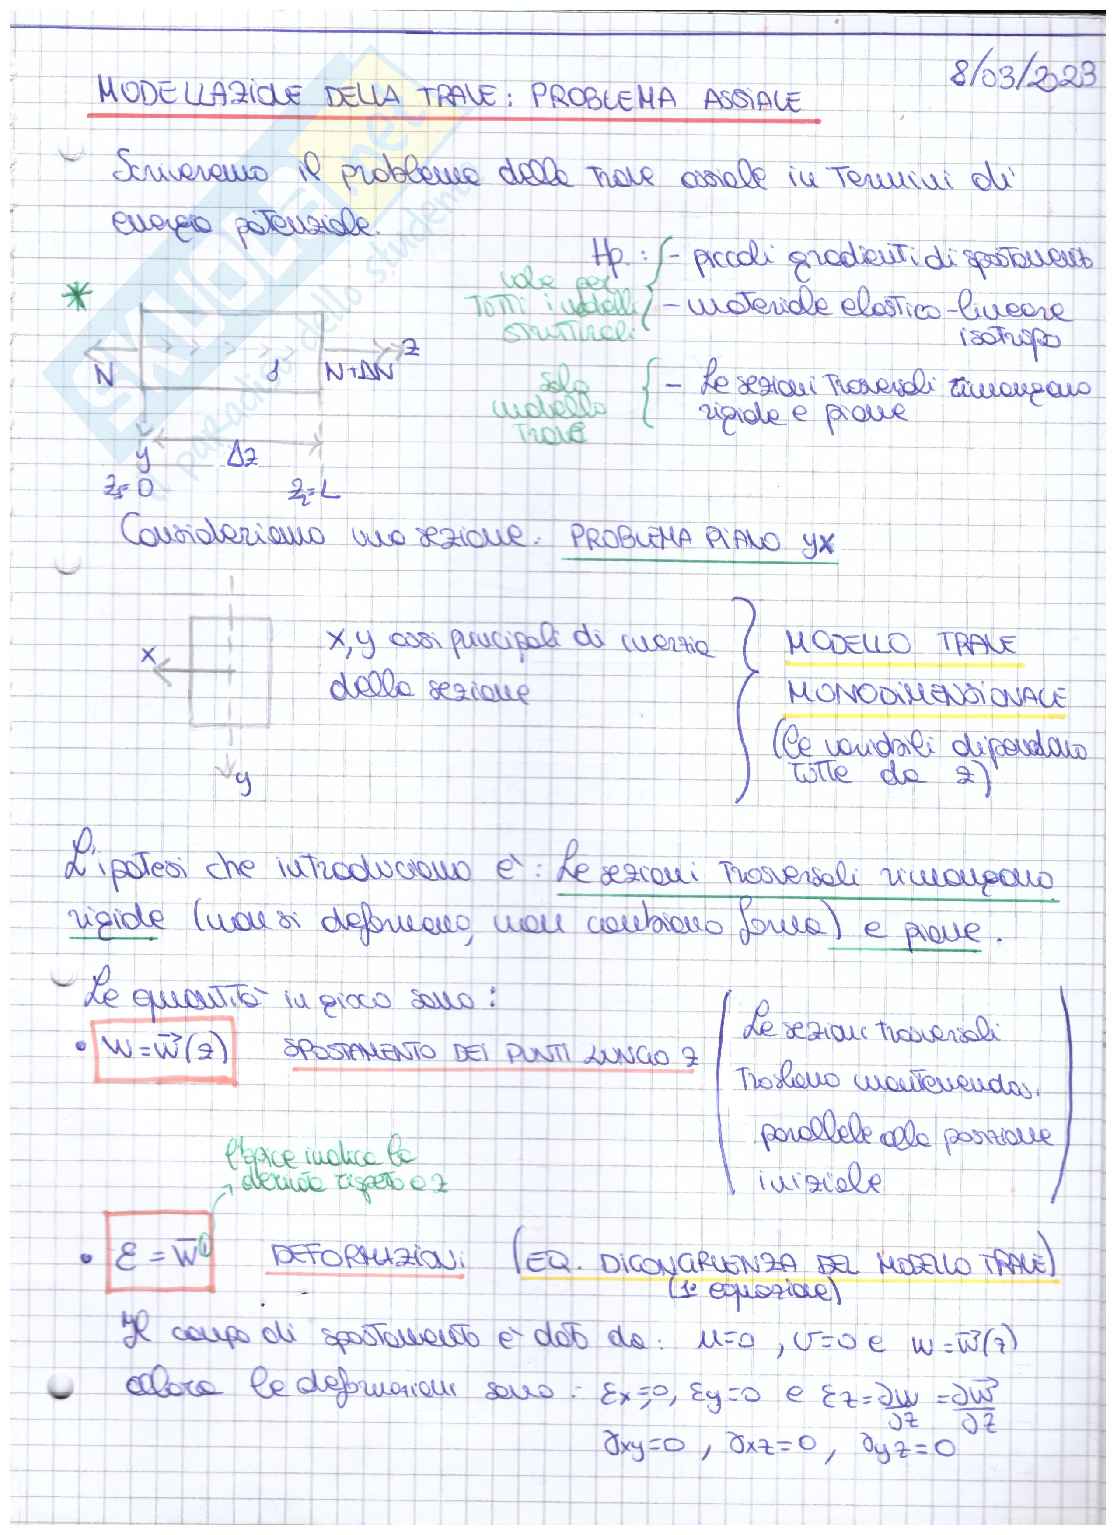 8/03/2023
MODELLAZIONE DELLA TRAVE: PROBLEMA ASSIALE
Scriveremo il problema della trave assiale in termini di
energia potenziale.
Hp.: - piccoli gradienti di spostamento
- materiale elastico-lineare
isotropo
vale per
tutti i modelli
strutturali
- Le sezioni trasversali rimangono
rigide e piane
solo
modello
trave
N
N+ΔN
z
y
Δz
z₁=0
z₂=L
Consideriamo una sezione. PROBLEMA PIANO yx
x
y
x, y assi principali di inerzia
della sezione
MODELLO TRAVE
MONODIMENSIONALE
(le variabili dipendono
tutte da z)
L'ipotesi che introduciamo è: Le sezioni trasversali rimangono
rigide (non si deformano, non cambiano forma) e piane.
Le quantità in gioco sono:
• w=w⃗(z) SPOSTAMENTO DEI PUNTI LUNGO z
(Le sezioni trasversali
traslano mantenendosi
parallele alla posizione
iniziale)
l'apice indica la
derivata rispetto a z
• ε = w̅' DEFORMAZIONI (EQ. DI CONGRUENZA DEL MODELLO TRAVE)
(1ª equazione)
Il campo di spostamento è dato da: u=0, v=0 e w=w⃗(z)
allora le deformazioni sono: εx=0, εy=0 e εz=∂w/∂z=∂w⃗/∂z
γxy=0, γxz=0, γyz=0
SKUOLA.net
il paradiso dello studente